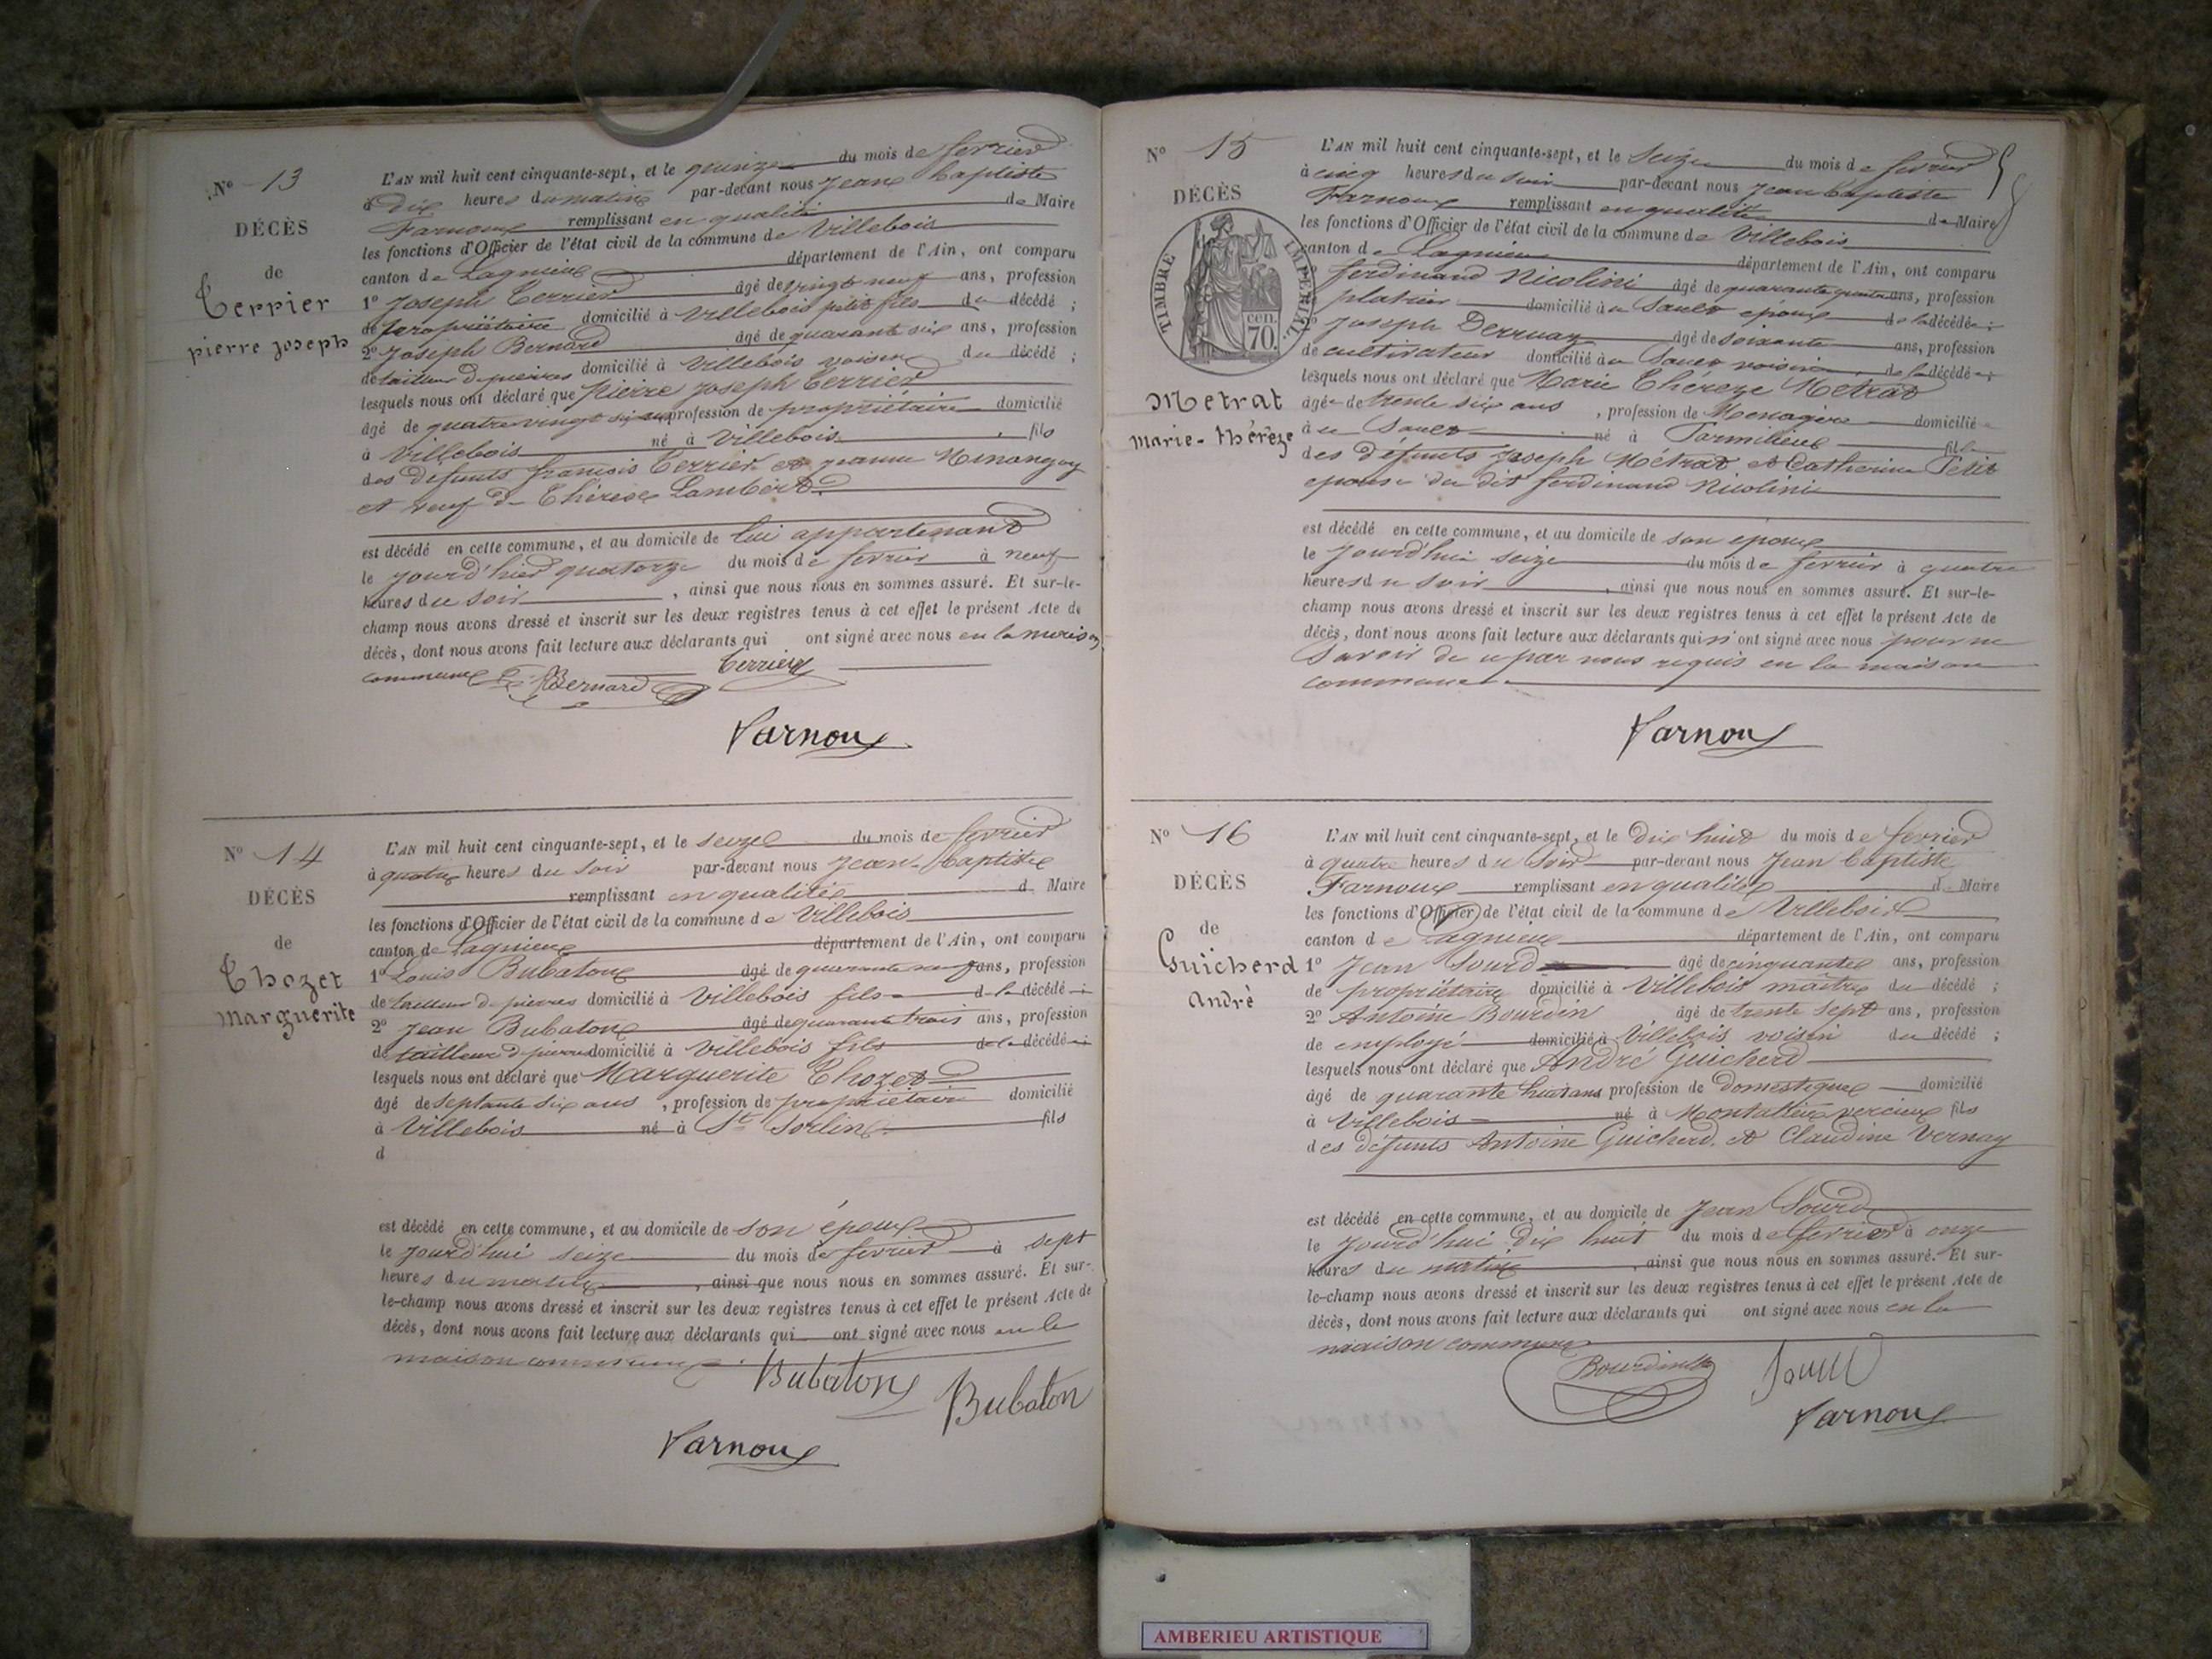 Nº 13
DÉCÈS
de
Terrier
pierre joseph
L'AN mil huit cent cinquante-sept, et le quinze du mois de fevrier
à Dix heures du matin par-devant nous Jean Baptiste
Farnoux remplissant en qualité de Maire
les fonctions d'Officier de l'état civil de la commune de Villebois
canton de Lagnieu département de l'Ain, ont comparu
1º Joseph Terrier âgé de vingt neuf ans, profession
de propriétaire domicilié à Villebois petit fils du décédé ;
2º Joseph Bernard âgé de quarante six ans, profession
de tailleur de pierres domicilié à Villebois voisin du décédé ;
lesquels nous ont déclaré que Pierre Joseph Terrier
âgé de quatre vingt profession de propriétaire domicilié
à Villebois né à Villebois fils
des défunts francois Terrier et jeanne
et veuf de Thérèse Lambert
est décédé en cette commune, et au domicile de lui appartenant
le jourd'hier quatorze du mois de fevrier à neuf
heures du soir, ainsi que nous nous en sommes assuré. Et sur-le-
champ nous avons dressé et inscrit sur les deux registres tenus à cet effet le présent Acte de
décès, dont nous avons fait lecture aux déclarants qui ont signé avec nous en la maison
commune Bernard Terrier
Farnoux
Nº 14
DÉCÈS
de
Thozet
marguerite
L'AN mil huit cent cinquante-sept, et le seize du mois de fevrier
à quatre heures du soir par-devant nous Jean-Baptiste
remplissant en qualité de Maire
les fonctions d'Officier de l'état civil de la commune de Villebois
canton de Lagnieu département de l'Ain, ont comparu
1º Louis Bubaton âgé de quarante neuf ans, profession
de tailleur de pierres domicilié à Villebois fils de la décédé ;
2º Jean Bubaton âgé de quarante trois ans, profession
de tailleur de pierres domicilié à Villebois fils de la décédé ;
lesquels nous ont déclaré que Marguerite Thozet
âgé de septante six ans, profession de propriétaire domicilié
à Villebois né à St Sorlin fils
d
est décédé en cette commune, et au domicile de son époux
le jourd'hui seize du mois de fevrier à sept
heures du matin, ainsi que nous nous en sommes assuré. Et sur-
le-champ nous avons dressé et inscrit sur les deux registres tenus à cet effet le présent Acte de
décès, dont nous avons fait lecture aux déclarants qui ont signé avec nous en la
maison commune. Bubaton Bubaton
Farnoux
Nº 15
DÉCÈS
TIMBRE IMPÉRIAL
cen.
70.
Metrat
marie-thérèze
L'AN mil huit cent cinquante-sept, et le seize du mois de fevrier
à cinq heures du soir par-devant nous Jean Baptiste
Farnoux remplissant en qualité de Maire
les fonctions d'Officier de l'état civil de la commune de Villebois
canton de Lagnieu département de l'Ain, ont comparu
ferdinand Nicolini âgé de quarante quatre ans, profession
platrier domicilié à Sault époux de la décédée ;
Joseph Derruaz âgé de soixante ans, profession
de cultivateur domicilié au Sault voisin de la décédé ;
lesquels nous ont déclaré que Marie Thereze Metrat
âgée de trente six ans, profession de Menagère domicilié
à né à Parmilieu fille
des défunts Joseph Métrat et Catherine Petit
epouse du dit ferdinand Nicolini
est décédé en cette commune, et au domicile de son époux
le jourd'hui seize du mois de fevrier à quatre
heures du soir, ainsi que nous nous en sommes assuré. Et sur-le-
champ nous avons dressé et inscrit sur les deux registres tenus à cet effet le présent Acte de
décès, dont nous avons fait lecture aux déclarants qui n'ont signé avec nous pour ne
savoir de ce par nous requis en la maison
commune.
Farnoux
Nº 16
DÉCÈS
de
Guicherd
André
L'AN mil huit cent cinquante-sept, et le dix huit du mois de fevrier
à quatre heures du soir par-devant nous Jean Baptiste
Farnoux remplissant en qualité de Maire
les fonctions d'Officier de l'état civil de la commune de Villebois
canton de Lagnieu département de l'Ain, ont comparu
1º Jean Sourd âgé de cinquante ans, profession
de propriétaire domicilié à Villebois maître du décédé ;
2º Antoine Bourdin âgé de trente sept ans, profession
de employé domicilié à Villebois voisin du décédé ;
lesquels nous ont déclaré que André Guicherd
âgé de quarante huit ans profession de Domestique domicilié
à Villebois né à Montalieu vercieu fils
des défunts Antoine Guicherd et Claudine Vernay
est décédé en cette commune, et au domicile de Jean Sourd
le jourd'hui dix huit du mois de fevrier à onze
heures du matin, ainsi que nous nous en sommes assuré. Et sur-
le-champ nous avons dressé et inscrit sur les deux registres tenus à cet effet le présent Acte de
décès, dont nous avons fait lecture aux déclarants qui ont signé avec nous en la
maison commune
Bourdin Sourd
Farnoux
AMBERIEU ARTISTIQUE